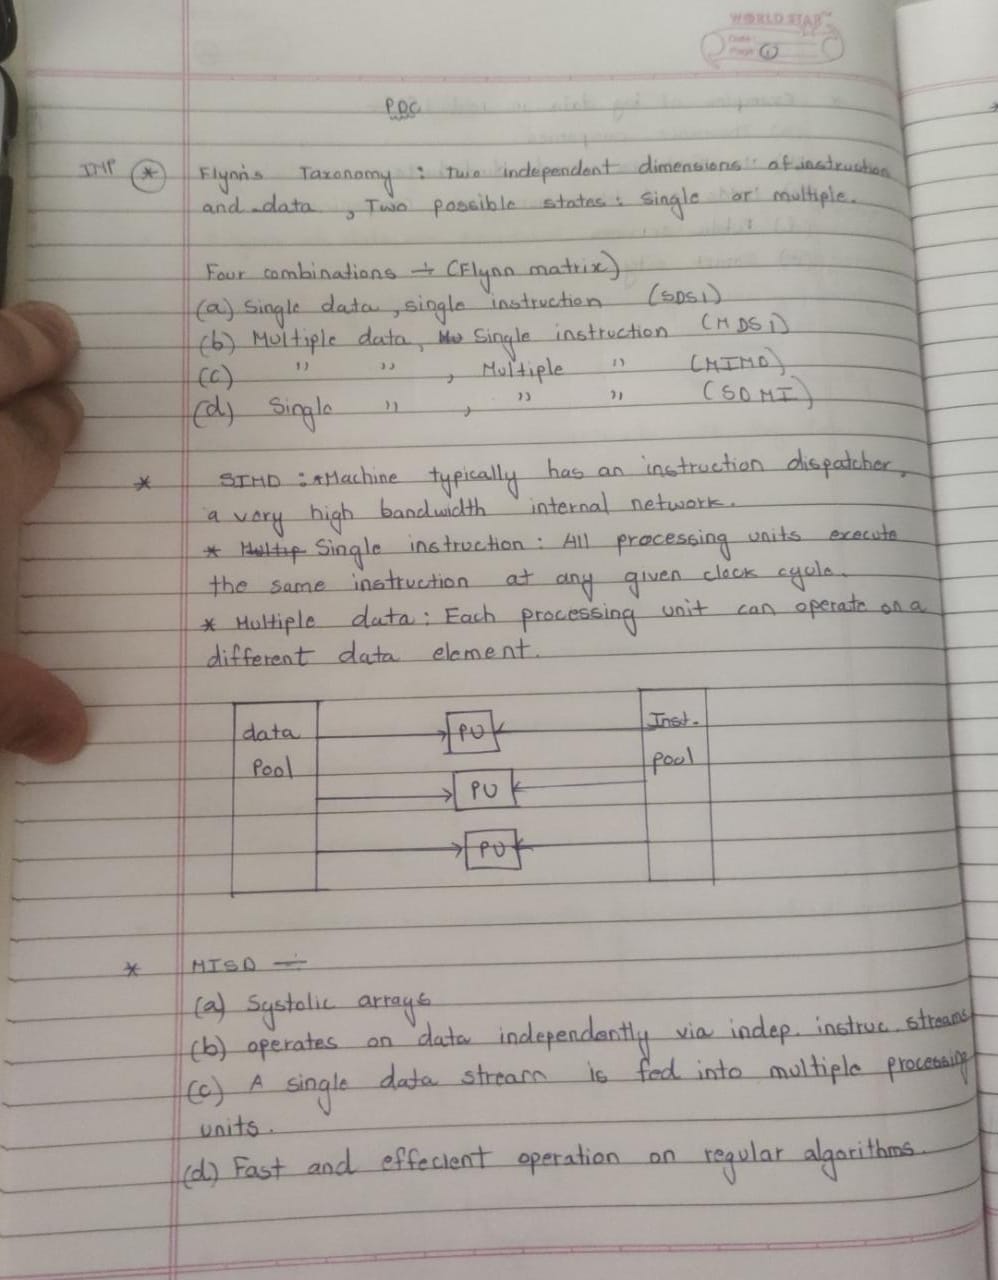 WORLD STAR™
Date:
Page: 1
PDC
IMP * Flynn's Taxonomy : Two independent dimensions of instruction
and data , Two possible states : Single or multiple.
Four combinations → (Flynn matrix)
(a) Single data , single instruction (SDSI)
(b) Multiple data, Single instruction (MDSI)
(c) " " , Multiple " (MIMD)
(d) Single " , " " (SDMI)
* SIMD : * Machine typically has an instruction dispatcher,
a very high bandwidth internal network.
* Multip Single instruction : All processing units execute
the same instruction at any given clock cycle.
* Multiple data : Each processing unit can operate on a
different data element.
data
Pool
PU
PU
PU
Inst.
pool
* MISD ÷
(a) Systolic arrays
(b) operates on data independently via indep. instruc. streams
(c) A single data stream is fed into multiple processing
units.
(d) Fast and effecient operation on regular algorithms.